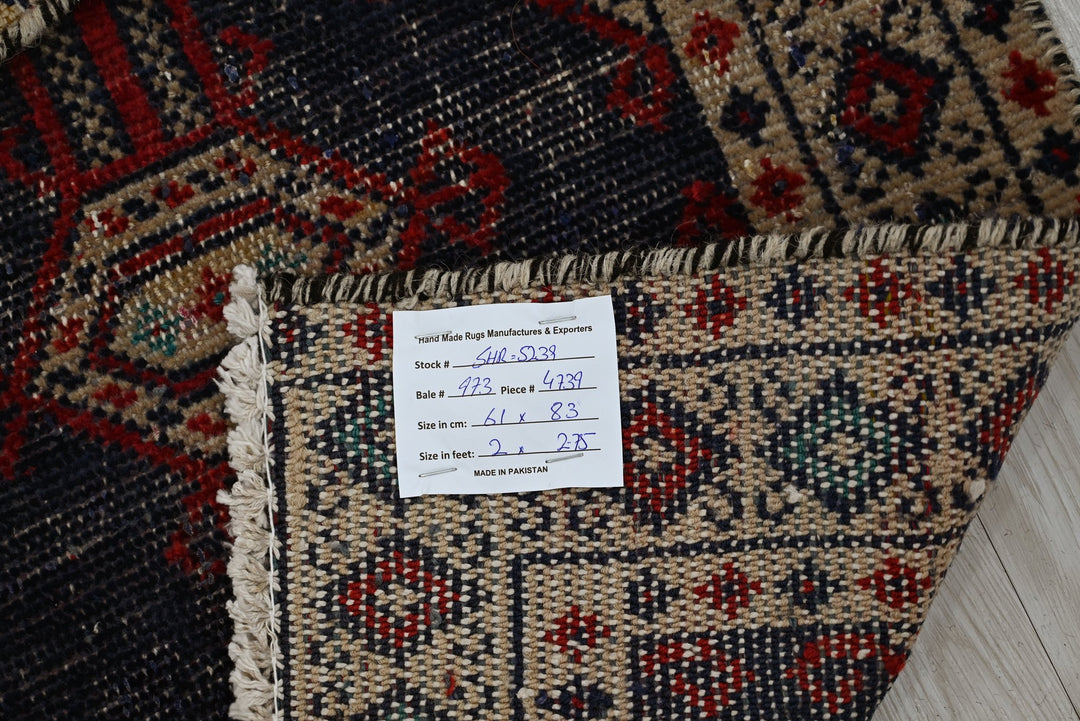 Hand Made Rugs Manufactures & Exporters
Stock # SHR=5239
Bale # 973 Piece # 4739
Size in cm: 61 x 83
Size in feet: 2 x 2.75
MADE IN PAKISTAN